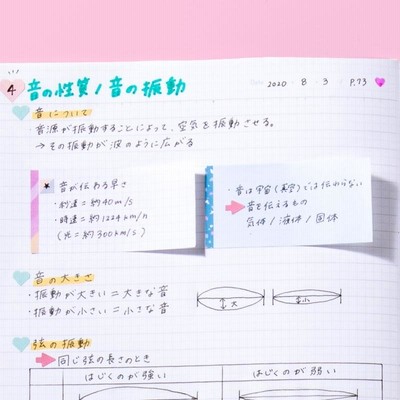 4 音の性質 / 音の振動
2020 8 3 P.73
音について
・音源が振動することによって、空気を振動させる。
→その振動が波のように広がる
★ 音が伝わる早さ
・秒速=約340m/s
・時速=約1224km/h
(光=約300km/s)
・音は宇宙(真空)では伝わらない
音を伝えるもの
気体/液体/固体
音の大きさ
・振動が大きい=大きな音
・振動が小さい=小さな音
大
小
弦の振動
同じ弦の長さのとき
はじくのが強い
はじくのが弱い